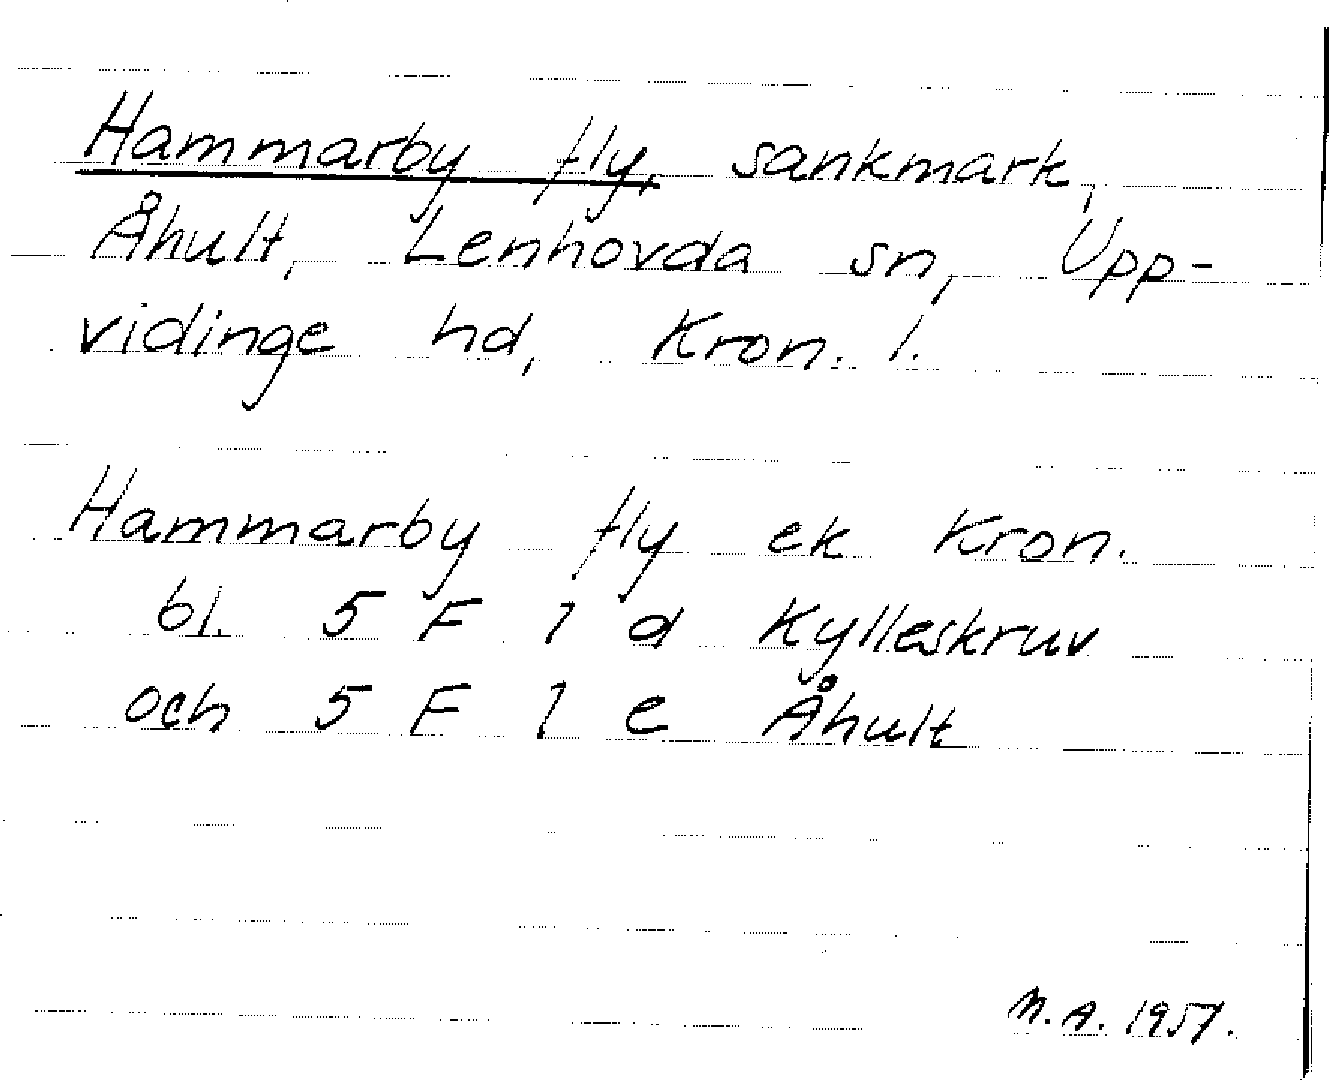 Hammarby fly, sankmark,
Åhult, Lenhovda sn, Upp-
vidinge hd, Kron. l.
Hammarby fly ek Kron.
bl. 5 F 1 d Kylleskruv
och 5 F 1 e Åhult
M.A. 1957.